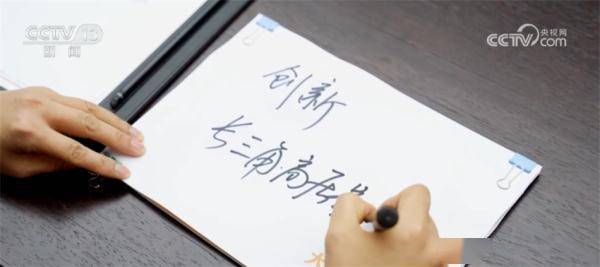 CCTV 13
新闻
央视网
CCTV.com
创新
长三角高质